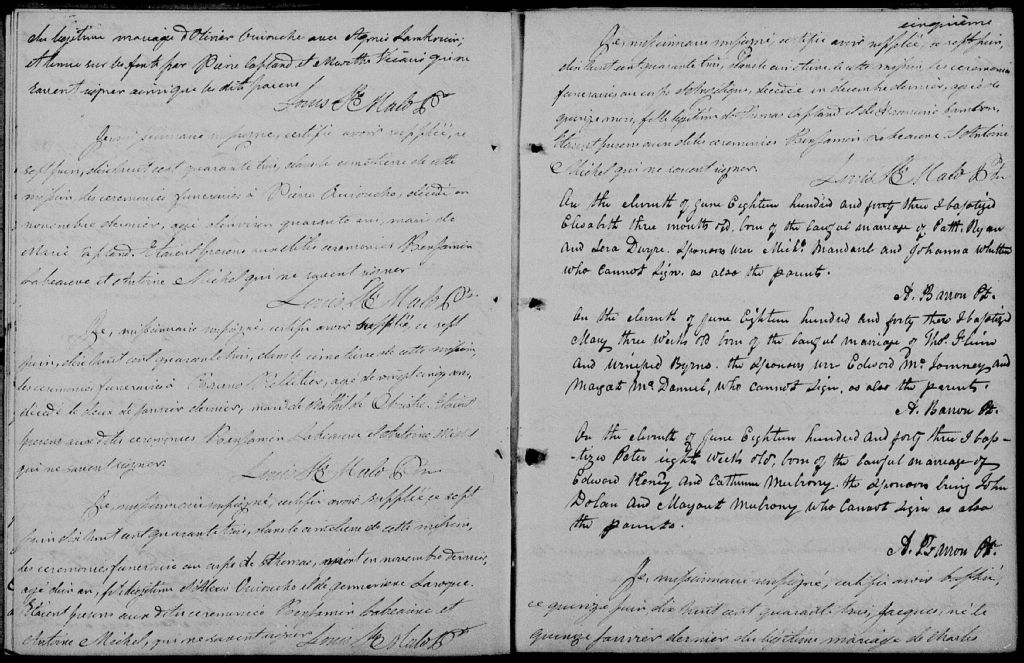 du légitime mariage d'Olivier Quirouche avec Agnes
et tenue sur les fonts par Pierre Capland et qui ne
savent signer ainsi que les dits parens
Louis St. Malo Ptr
Je, missionnaire soussigné, certifie avoir suppléé, ce
sept juin, dix huit cent quarante trois, dans le cimetière de cette
mission, les ceremonies funeraires à Pierre Quirouche, décédé en
novembre dernier, agé d'environ quarante ans, mari de
Marie Capland. Etaient presens aux dites ceremonies Benjamin
Labeauve et Antoine Michel qui ne savent signer
Louis St. Malo Ptr.
Je, missionnaire soussigné certifie avoir suppléé ce sept
juin, dix huit cent quarante trois, dans le cimetière de cette mission,
les ceremonies funeraires à Pelletier, agé de vingt cinq ans,
décédé le deux de janvier dernier, mari de Etaient
presens aux dites ceremonies Benjamin Labeauve et Antoine Michel
qui ne savent signer.
Louis St. Malo Ptr
Je, missionnaire soussigné, certifie avoir suppléé ce sept
juin dix huit cent quarante trois, dans le cimetière de cette mission,
les ceremonies funeraires au corps de thomas, mort en novembre dernier,
agé d'un an, fils légitime d'Alexis Quirouche et de genevieve Laroque.
Etaient presens aux dites ceremonies Benjamin Labeauve et
Antoine Michel, qui ne savent signer
Louis St. Malo Ptr
cinquième
Je, missionnaire soussigné, certifie avoir suppléé, ce sept juin,
dix huit cent quarante trois, dans le cimetière de cette mission les ceremonies
funeraires au corps d'Angelique, décédée en décembre dernier, agée de
quinze mois, fille légitime de thomas Capland et de
Etaient presens aux dites ceremonies Benjamin Labeauve et Antoine
Michel qui ne savent signer.
Louis St. Malo Ptr.
On the eleventh of June Eighteen hundred and forty three I baptized
Elisabeth three months old, born of the lawful marriage of Patt. Ryan
and Dwyre. Sponsors were Michl. and Johanna
who cannot sign. as also the parents.
A. Barron Pt.
On the eleventh of June Eighteen hundred and forty three I baptized
Mary three weeks old born of the lawful marriage of Thos. Flinn
and Winifred Byrne. the sponsors were Edward Mc. and
Margat Mc. Daniel, who cannot sign, as also the parents.
A. Barron Pt.
On the eleventh of June Eighteen hundred and forty three I bap-
-tized Peter eight weeks old, born of the lawful marriage of
Edward Henry and Catherine Mulrony. the sponsors being John
Dolan and Margaret Mulrony who cannot sign as also
the parents.
A. Barron Pt.
Je, missionnaire soussigné, certifie avoir baptisé,
ce quinze juin dix huit cent quarante trois, Jacques, né le
quinze janvier dernier du légitime mariage de Charles